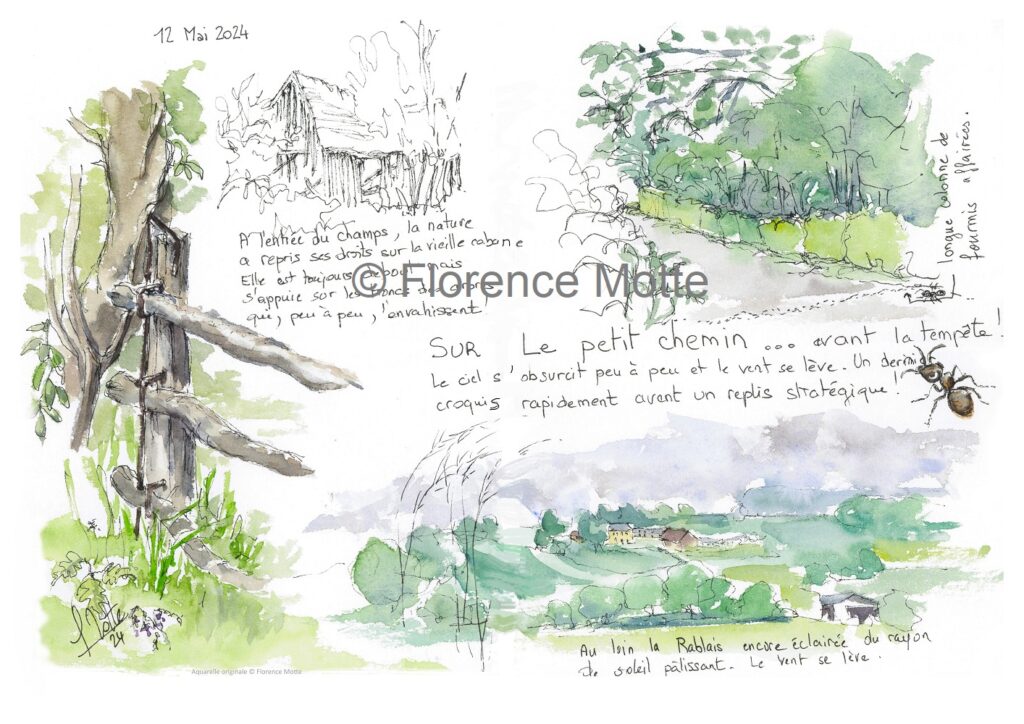 12 Mai 2024
A l'entrée du champs, la nature
a repris ses droits sur la vieille cabane
Elle est toujours debout mais
s'appuie sur les troncs des arbres
qui, peu à peu, l'envahissent
Longue colonne de
fourmis affairées.
© Florence Motte
SUR Le petit chemin ... avant la tempête !
Le ciel s'obsurcit peu à peu et le vent se lève. Un dernier
croquis rapidement avant un replis stratégique !
Au loin la Rablais encore éclairée du rayon
de soleil pâlissant. Le vent se lève.
F Motte
24
Aquarelle originale © Florence Motte